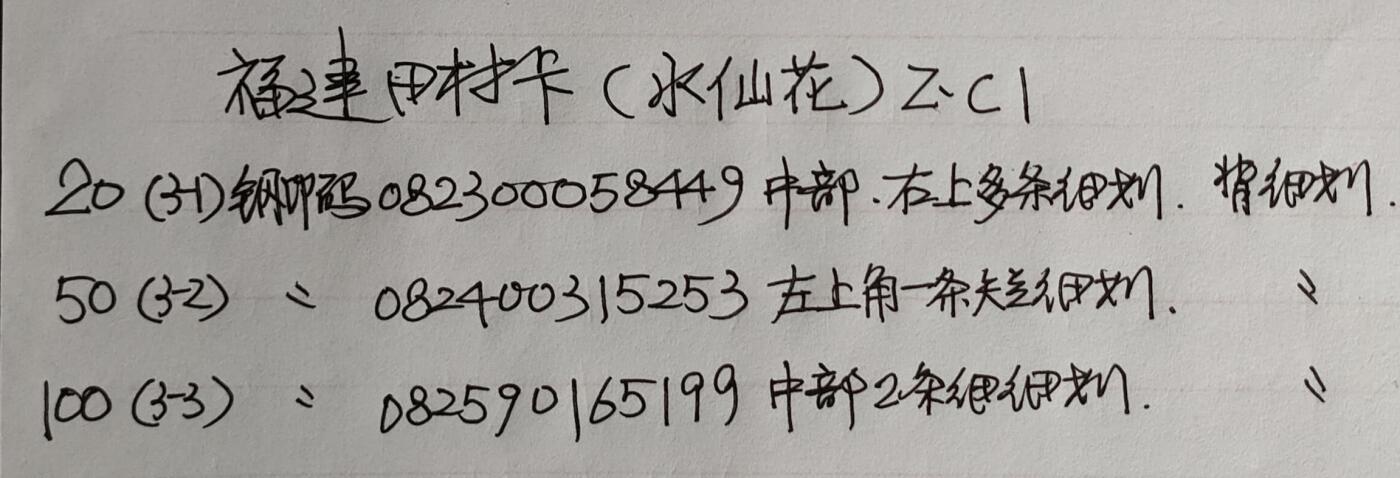 福建田村卡（水仙花）Z·C1
20（3-1）钢印码082300058449 中部.右上多条细划. 背细划.
50（3-2） 〃 082400315253 左上角一条短细划. 〃
100（3-3） 〃 082590165199 中部2条细细划. 〃